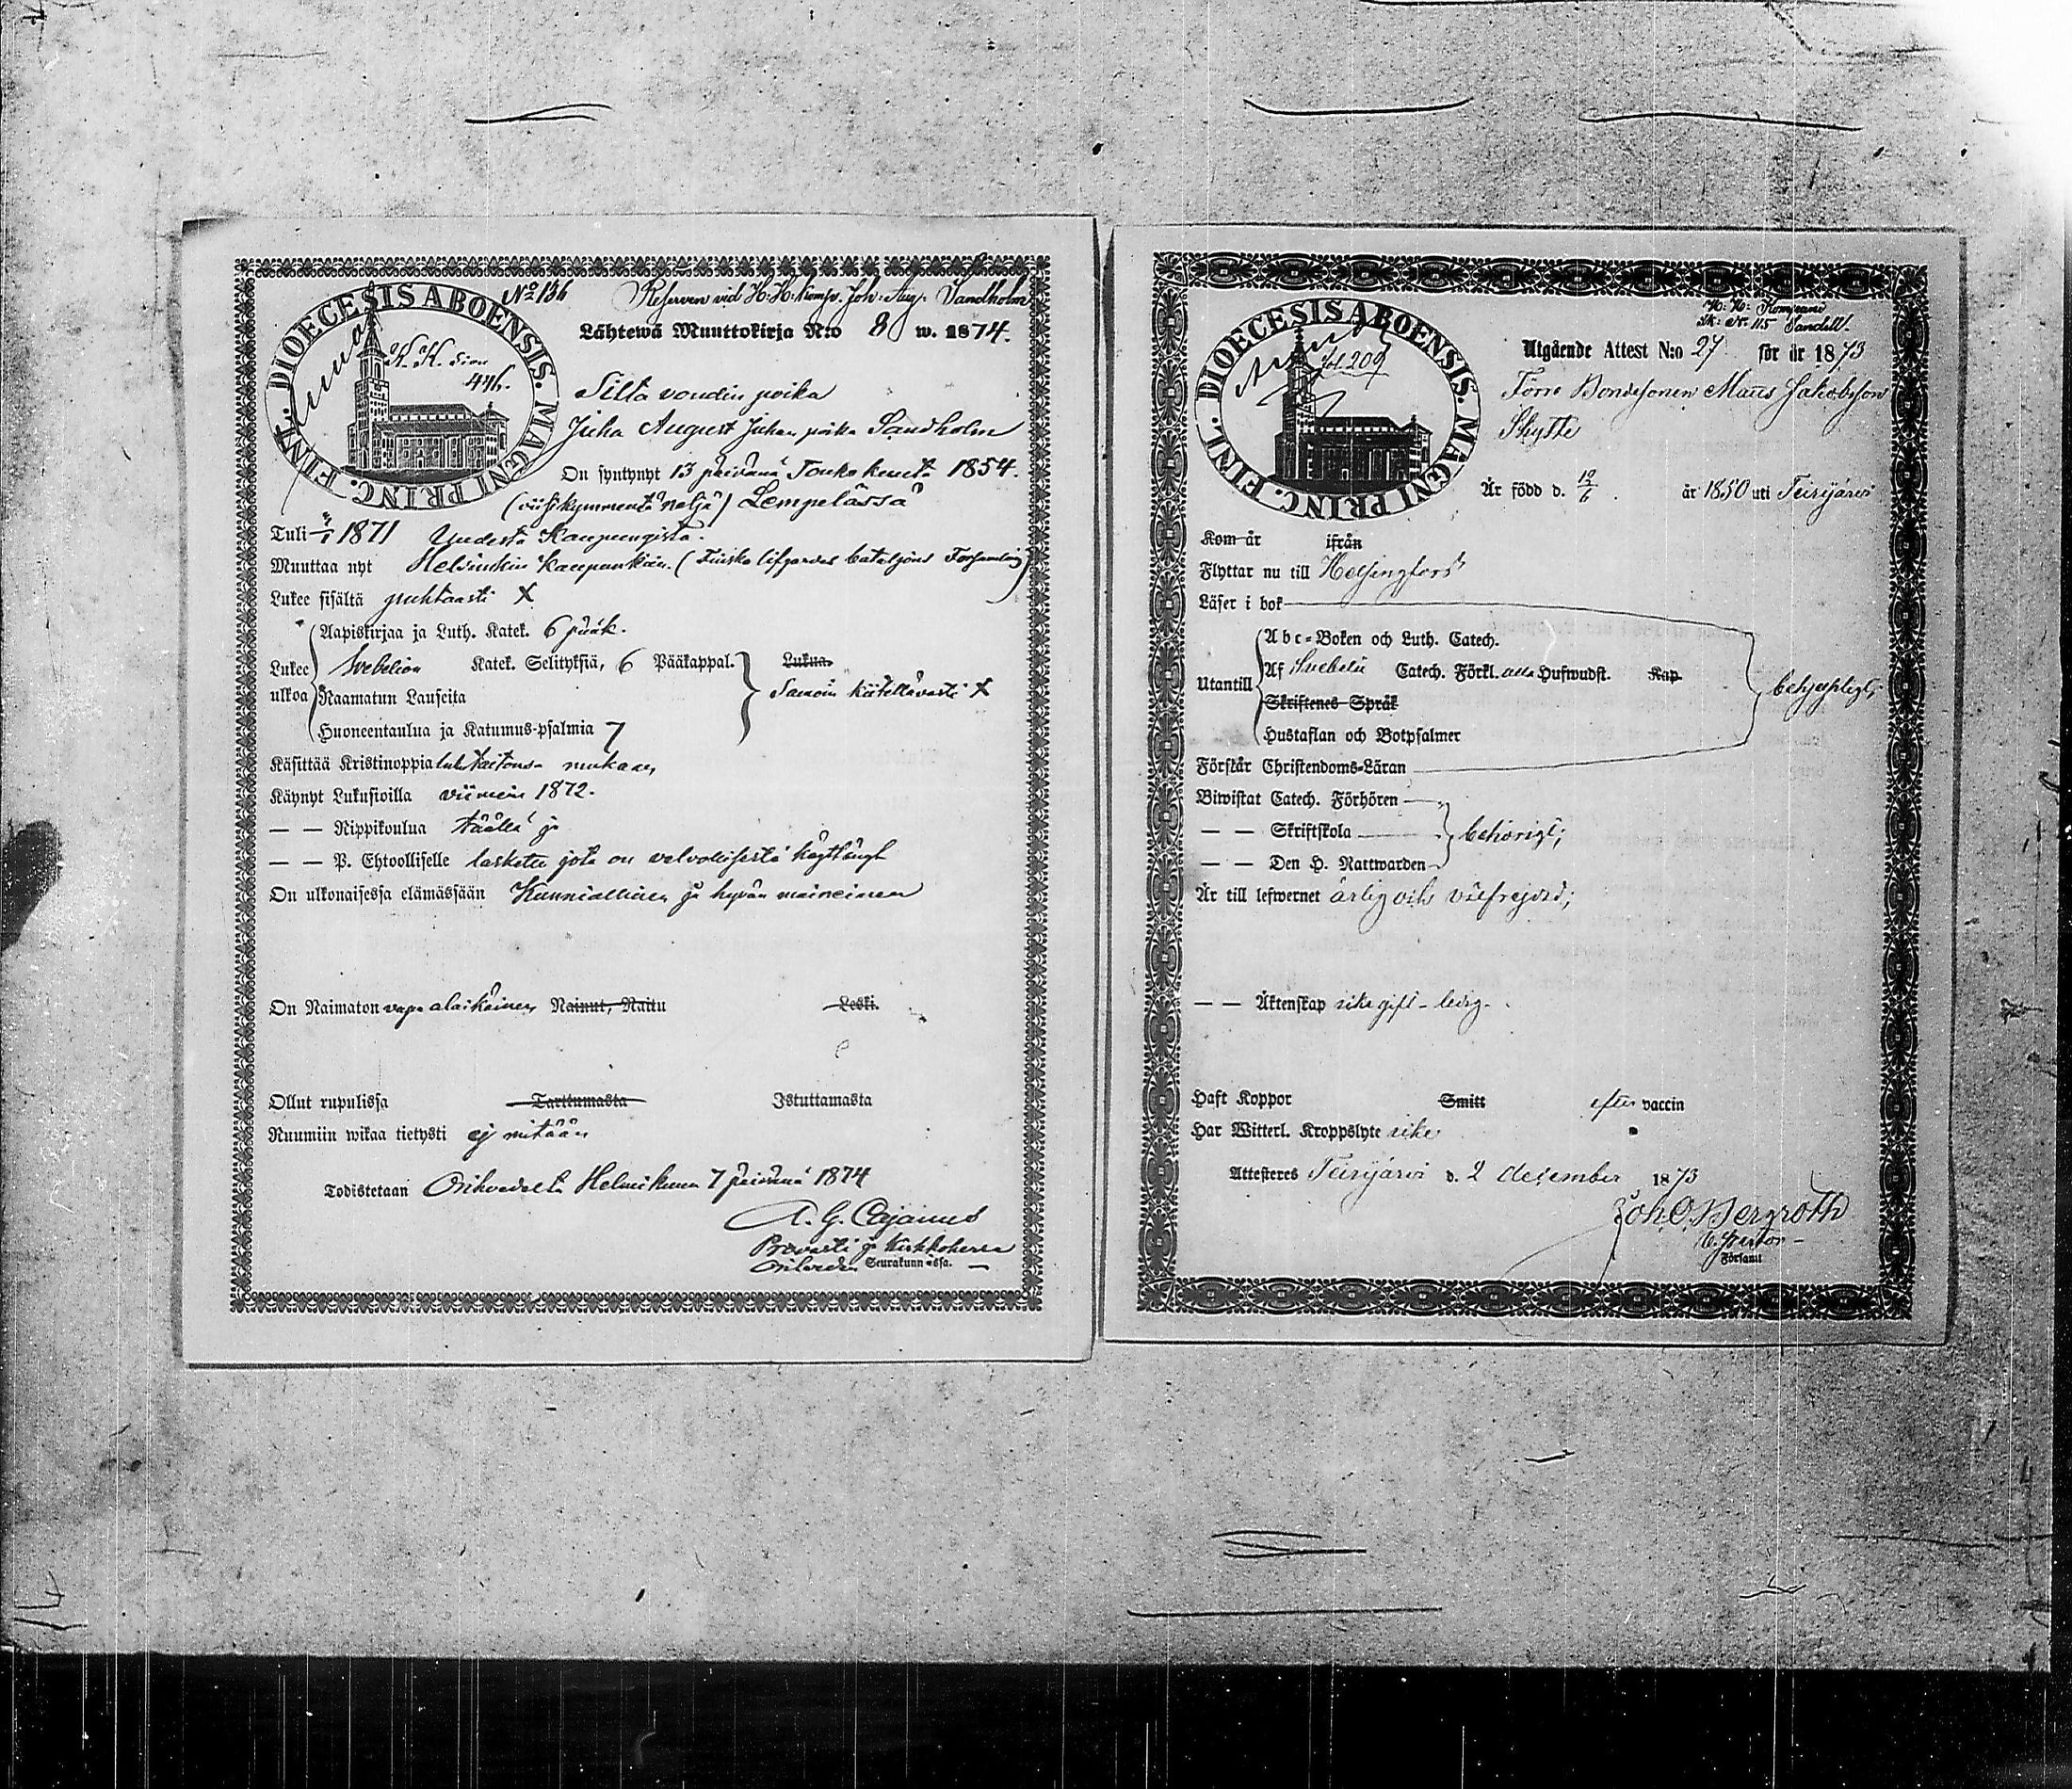 DIOECESIS ABOENSIS. MAGNI PRINC. FINL.
K. K. sivu
446.
No 136 Reserven vid H. H. Komp. Joh. Aug. Sandholm
Lähtewä Muuttokirja N:o 8 w. 1874.
Silta voudin poika
Juha August Juhan poika Sandholm
On syntynyt 13 päivänä Toukokuuta 1854.
(viisikymmentä neljä) Lempelässä
Tuli 1871 Uudesta Kaupungista.
Muuttaa nyt Helsinkin Kaupunkiin. (Finska lifgardes bataljons Församling)
Lukee sisältä puhtaasti X
Aapiskirjaa ja Luth. Katek. 6 pääk.
Lukee Svebelion Katek. Selityksiä, 6 Pääkappal. Lukua.
ulkoa Raamatun Lauseita Samoin kiitettävästi X
Huoneentaulua ja Katumus-psalmia 7
Käsittää Kristinoppia lukutaitonsa mukaan,
Käynyt Lukusioilla viimein 1872.
— — Rippikoulua täällä ja
— — P. Ehtoolliselle laskettu jota on
On ulkonaisessa elämässään Kunniallinen ja hyvän maineinen
On Naimaton vapa alaikäinen, Nainut, Naitu Leski.
Ollut rupulissa Tarttumasta Istuttamasta
Ruumiin wikaa tietysti ej mitään
Todistetaan Orihvedeltä Helmikuun 7 päivänä 1874
A. G. Cajanus
Provasti ja Kirkkoherra
Orihveden Seurakunnassa.
DIOECESIS ABOENSIS. MAGNI PRINC. FINL.
fol. 209
H: H: Kompani
Sk: Nr. 115 Sandell.
Utgående Attest N:o 27 för år 1873
Förre Bondesonen Matts Jakobsson
Skytte
Är född d. 12/6 år 1850 uti Terijärvi
Kom år ifrån
Flyttar nu till Helsingfors
Läser i bok
Abc-Boken och Luth. Catech.
Utantill Af Svebelii Catech. Förkl. alla Hufwudst. Kap.
Skriftenes Språk
Hustaflan och Botpsalmer
Förstår Christendoms-Läran
Biwistat Catech. Förhören
— — Skriftskola behörigt;
— — Den H. Nattwarden
Är till lefwernet ärlig och välfrejdad;
— — Äktenskap icke gift - ledig.
Haft Koppor Smitt efter vaccin
Har Witterl. Kroppslyte icke
Attesteres Terijärvi d. 2 december 1873
Joh. O. Bergroth
Församl